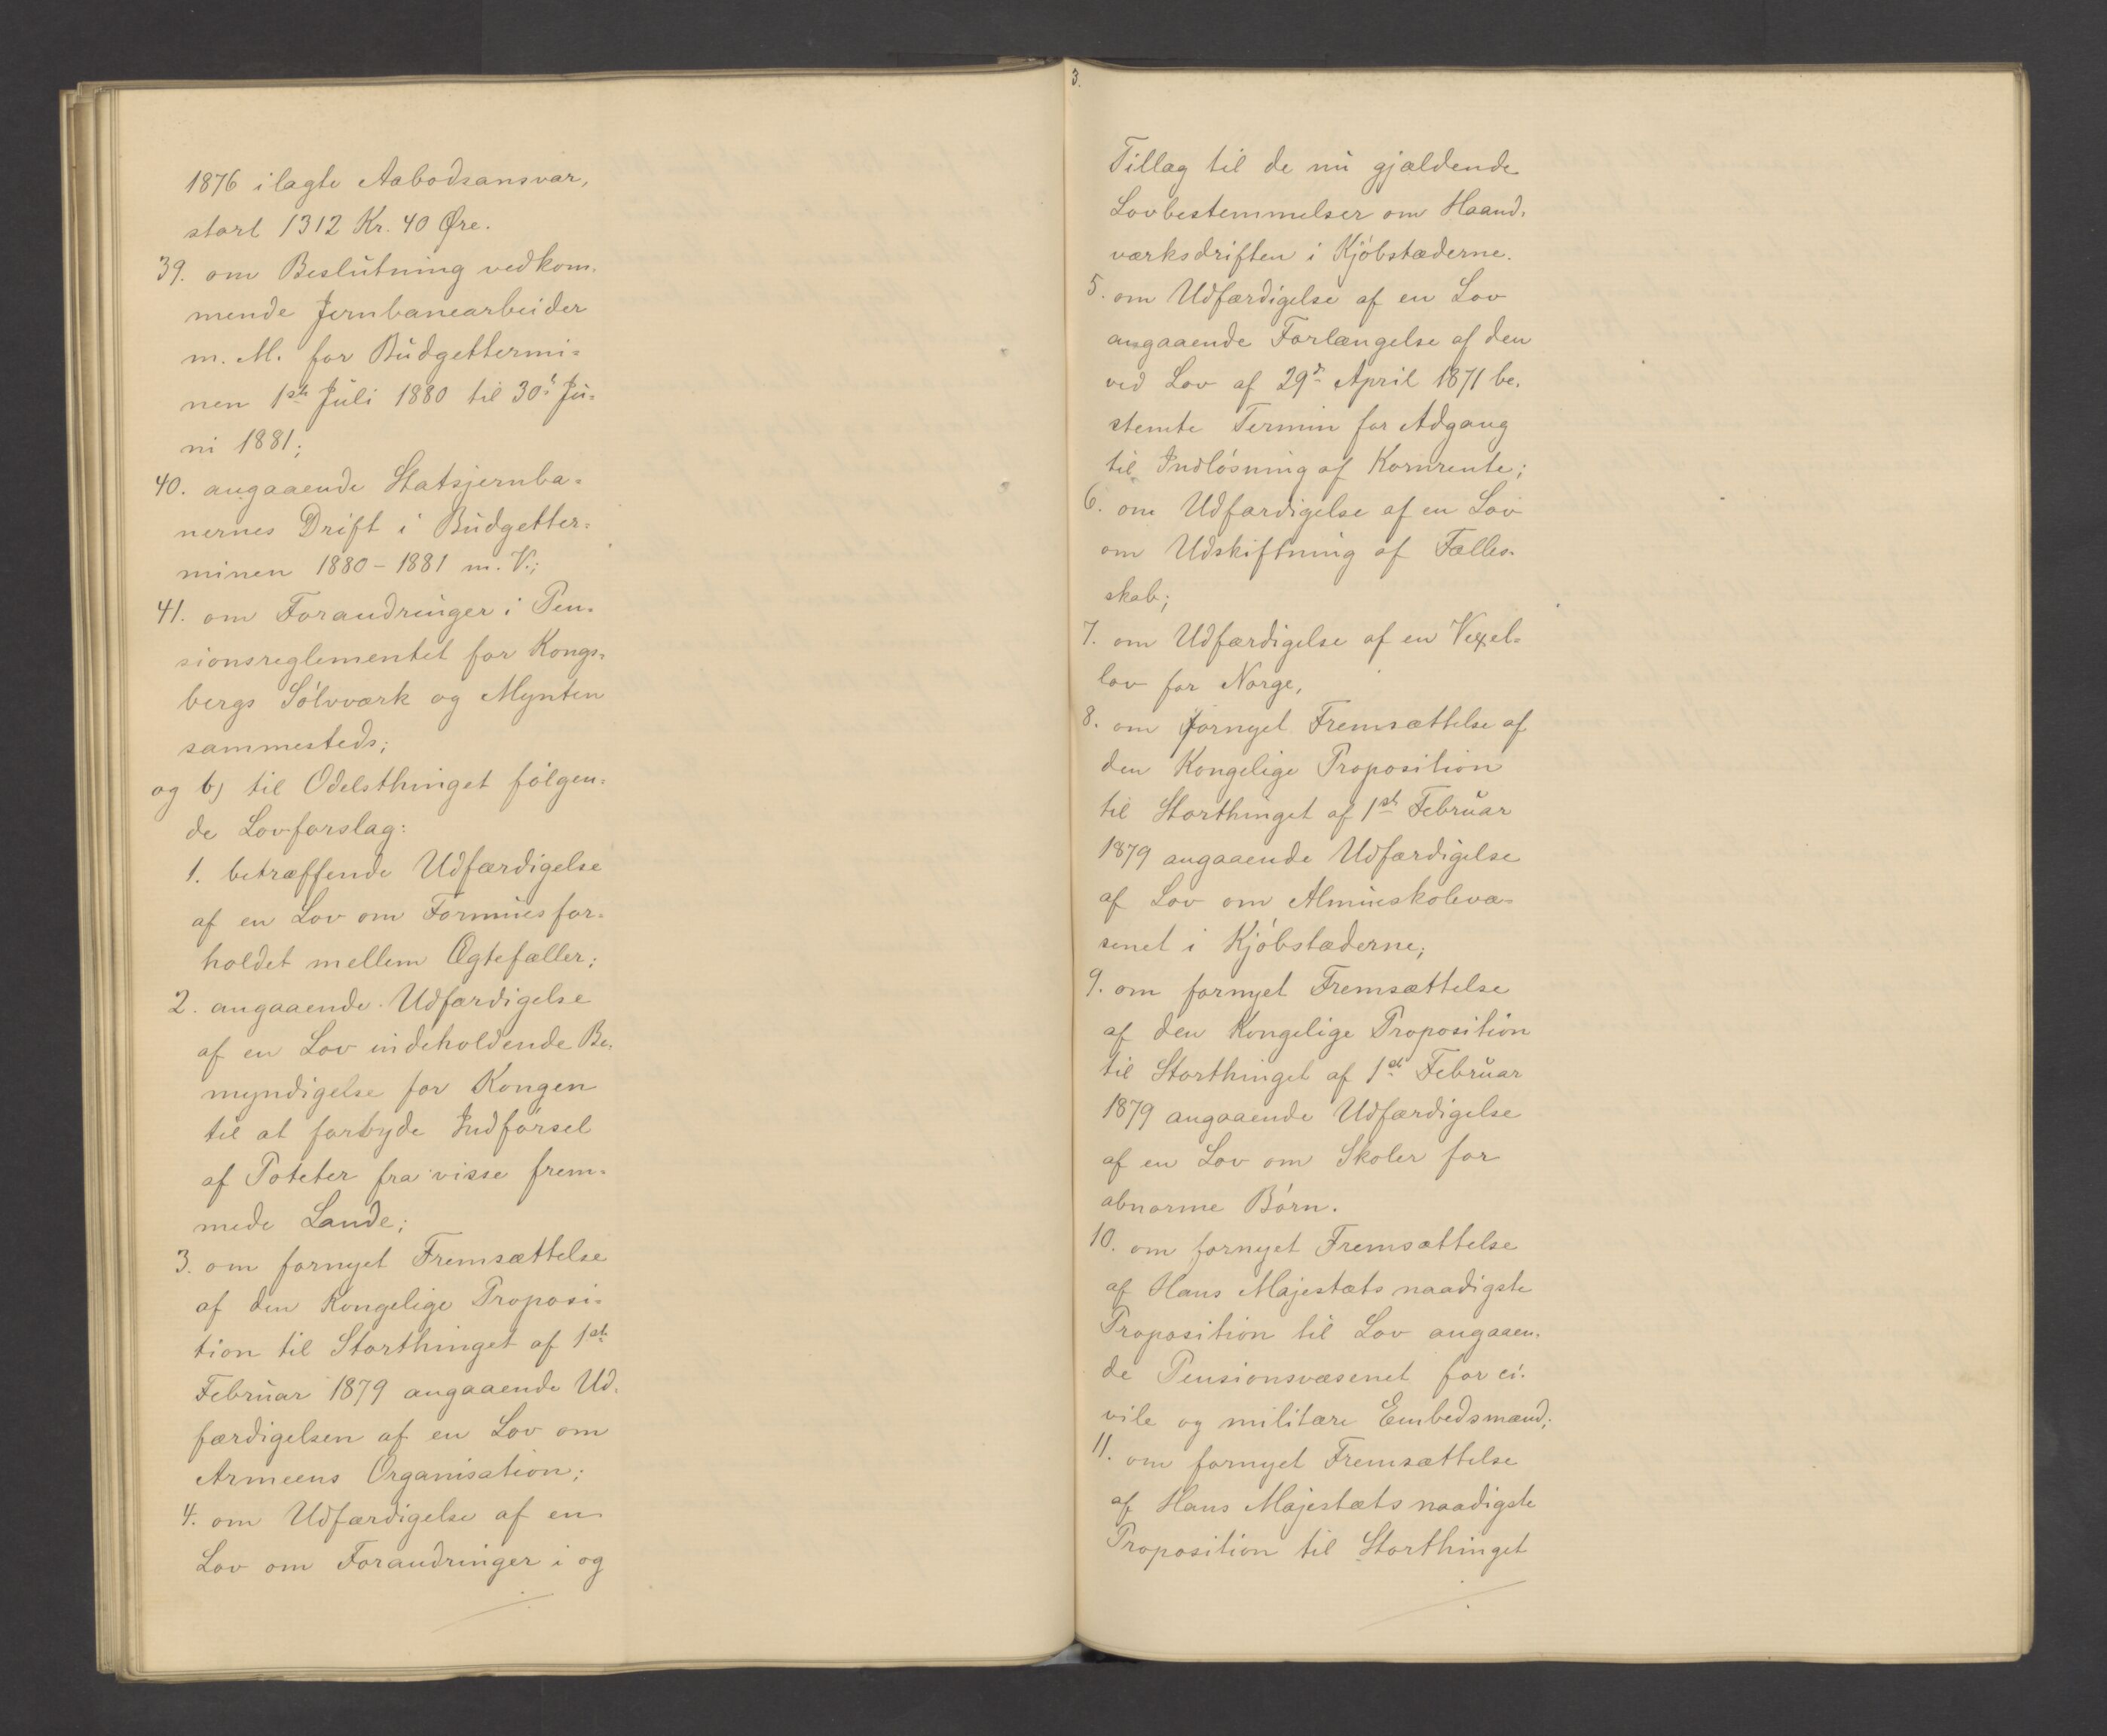 1876 ilagte Aabodsansvar,
stort 1312 Kr. 40 Øre.
39. om Beslutning vedkom-
mende Jernbanearbeider
m. M. for Budgettermi-
nen 1ste Juli 1880 til 30te Ju-
ni 1881;
40. angaaende Statsjernba-
nernes Drift i Budgetter-
minen 1880-1881 m. V.;
41. om Forandringer i Pen-
sionsreglementet for Kongs-
bergs Sølvværk og Mynten
sammesteds;
og b) til Odelsthinget følgen-
de Lovforslag:
1. betræffende Udfærdigelse
af en Lov om Formuesfor-
holdet mellem Ægtefæller;
2. angaaende Udfærdigelse
af en Lov indeholdende Be-
myndigelse for Kongen
til at forbyde Indførsel
af Poteter fra visse frem-
mede Lande;
3. om fornyet Fremsættelse
af den Kongelige Proposi-
tion til Storthinget af 1ste
Februar 1879 angaaende Ud-
færdigelsen af en Lov om
Armeens Organisation;
4. om Udfærdigelse af en
Lov om Forandringer i og
3.
Tillæg til de nu gjældende
Lovbestemmelser om Haand-
værksdriften i Kjøbstæderne.
5. om Udfærdigelse af en Lov
angaaende Forlængelse af den
ved Lov af 29de April 1871 be-
stemte Termin for Adgang
til Indløsning af Kornrente;
6. om Udfærdigelse af en Lov
om Udskiftning af Fælles-
skab;
7. om Udfærdigelse af en Vexel-
lov for Norge,
8. om fornyet Fremsættelse af
den Kongelige Proposition
til Storthinget af 1ste Februar
1879 angaaende Udfærdigelse
af Lov om Almueskolevæ-
senet i Kjøbstæderne;
9. om fornyet Fremsættelse
af den Kongelige Proposition
til Storthinget af 1ste Februar
1879 angaaende Udfærdigelse
af en Lov om Skoler for
abnorme Børn.
10. om fornyet Fremsættelse
af Hans Majestæts naadigste
Proposition til Lov angaaen-
de Pensionsvæsenet for ci-
vile og militære Embedsmænd;
11. om fornyet Fremsættelse
af Hans Majestæts naadigste
Proposition til Storthinget